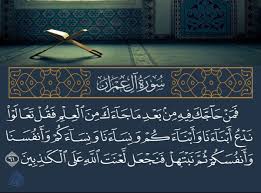 سُورَةُ آلِ عِمْرَان
فَمَنْ حَاجَّكَ فِيهِ مِنْ بَعْدِ مَا جَاءَكَ مِنَ الْعِلْمِ فَقُلْ تَعَالَوْا
نَدْعُ أَبْنَاءَنَا وَأَبْنَاءَكُمْ وَنِسَاءَنَا وَنِسَاءَكُمْ وَأَنْفُسَنَا
وَأَنْفُسَكُمْ ثُمَّ نَبْتَهِلْ فَنَجْعَلْ لَعْنَتَ اللَّهِ عَلَى الْكَاذِبِينَ ٦١